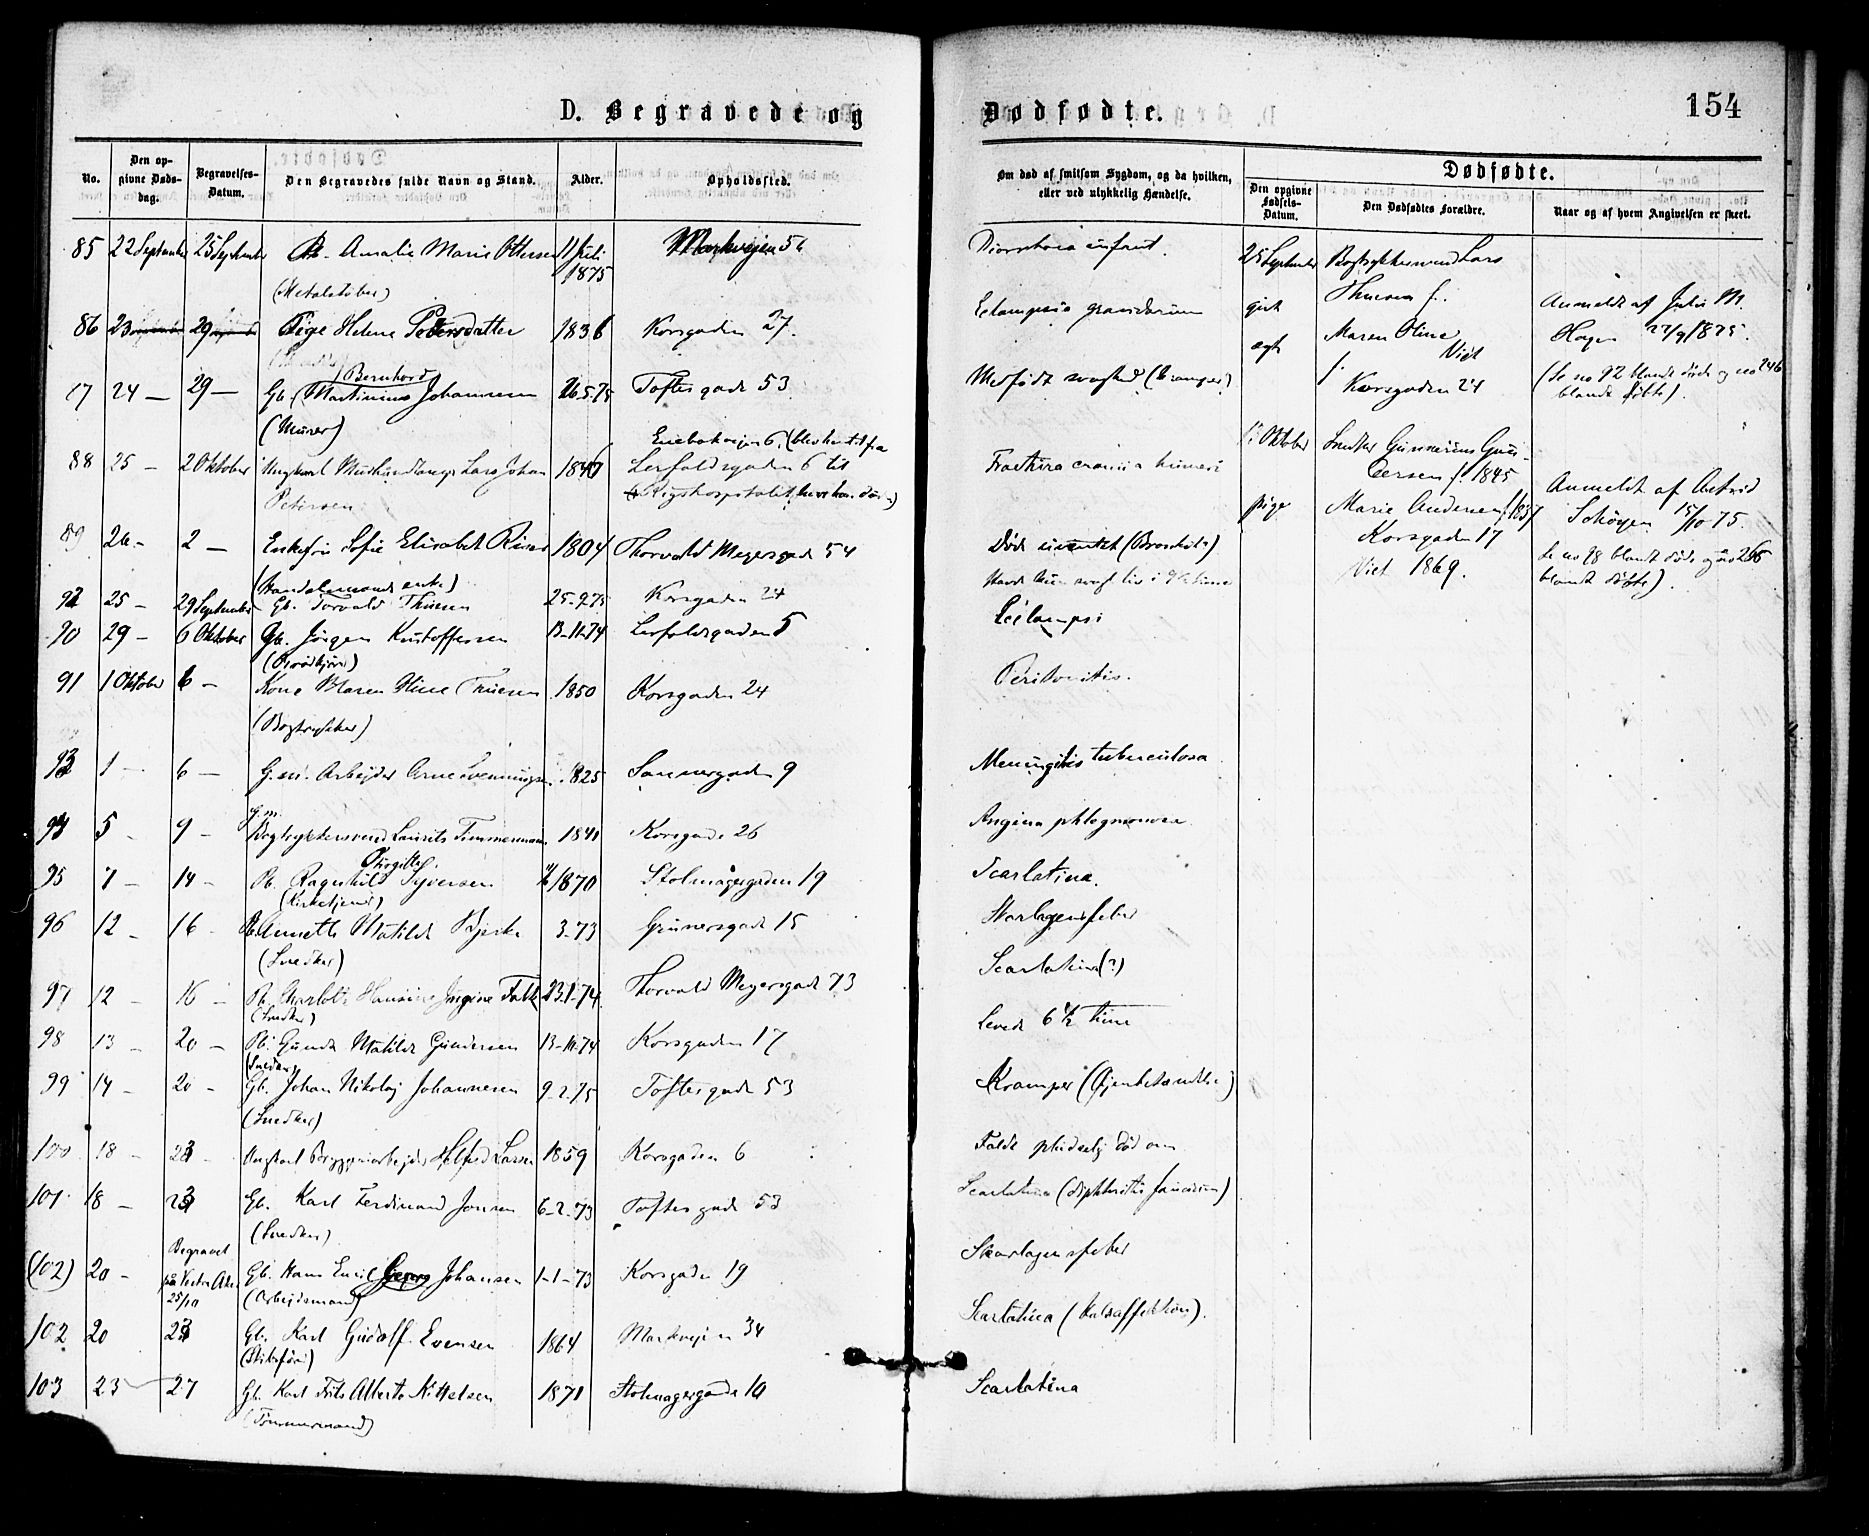 D. Begravede og Dødfødte.
154
No.
Den opgivne Døds-dag.
Begravelses-Datum.
Den Begravedes fulde Navn og Stand.
Alder.
Opholdssted.
Om død af smitsom Sygdom, og da hvilken, eller ved ulykkelig Hændelse.
Dødfødte.
Den opgivne Fødsels-Datum.
Den Dødfødtes Forældre.
Naar og af hvem Angivelsen er skeet.
85 22 September 25 September Pb. Amalie Marie Ottersen 11 Juli 1875 Markvejen 56
(Metalstøber)
86 23 29 Pige Helene Pedersdatter 1836 Korsgaden 27.
24 — 29 — Gb. Martinius Bernhard Johannesen 26.5.75 Toftesgade 53
(Murer)
88 25 — 2 Oktober Ungkarl Lars Johan 1846 Lerfaldsgaden 6 til
Petersen Rigshospitalet, hvor han døde)
89 26 — 2 — Enkefru Sofie Elisabet 1804 Thorvald Meyersgade 54
(Handelsmands enke)
92 25 — 29 September Gb. Torvald Thuesen 25-9.75 Korsgaden 24
90 29 — 6 Oktober Gb. Jørgen Kristoffersen 13-11-74 Lerfaldsgaden 5
91 1 Oktober 6 — Kone Maren Oline Thuesen 1850 Korsgaden 24
(Bogtrykker)
93 1 — 6 — G.m. Arbejder Arne Svenningsen 1825 Sannergaden 9
94 5 — 9 — G.m. Bogtrykkersvend Laurits Timmermann 1841 Korsgade 26
95 7 — 14 — Pb. Ragnhild Birgitte Syversen 1870 Stolmagergaden 19
(Kirketjener)
96 12 — 16 — Pb. Annette Matilde Bjerke 3-73 Grünersgade 15
(Snedker)
97 12 — 16 — Pb. Charlotte Hansine Ingine Falk 23.1-74 Thorvald Meyersgade 73
(Snedker)
98 13 — 20 — Pb. Gunda Matilde Gundersen 13-10-74 Korsgaden 17
(Snedker)
99 14 — 20 — Gb. Johan Nikolaj Johannesen 9-2.75 Toftesgade 53
(Snedker)
100 18 — 23 — Ungkarl Bryggeriarbejder Larsen 1859 Korsgaden 6
101 18 — 23 Gb. Karl Ferdinand Jonsen 6-2-73 Toftesgade 53
(Snedker)
(102) 20 — Begravet på Vestre Aker 25/10 Gb. Hans Emil Georg Johansen 1-1-73 Korsgaden 19
(Arbejdsmand)
102 20 23 Gb. Karl Gudolf Evensen 1864 Markvejen 34
103 23 — 27 Gb. Karl Frits Alberto Kittelsen 1871 Stolmagergade 10
(Tømmermand)
Diarrhoia infant.
Eclampsia gravidarum
Medfødt svaghed (Kramper)
Fractura cranii & humeri
Død (Bronchitis)
Eclampsi
Peritonitis.
Meningitis tuberculosa
Angina phlegmonosa
Scarlatina.
Skarlagensfeber
Scarlatina (?)
Levede 6 1/2 time
Kramper (Øjenbetændelse)
Faldt pludselig død om
Scarlatina (diphteritis faucium)
Skarlagensfeber
Scarlatina (Halsaffektion).
Scarlatina
25 September Bogtrykkersvend Lars
Thuesen f.
gut
Maren Oline
ægte
f. Viet
Korsgaden 24
Anmeldt af Julie M.
Hagen 27/9 1875.
(Se no 92 blandt døde og no 246
blandt døbte).
13 Oktober Snedker Gunnerius Gundersen f. 1845
pige Marie Andersen f. 1837
Korsgaden 17
Viet 1869.
Anmeldt af Astrid
Schøyen 15/10 75.
Se no 98 blandt døde og no 265
blandt døbte).